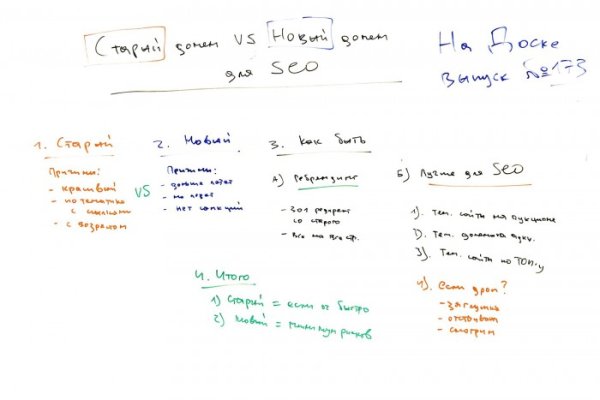 Старый домен VS Новый домен
для SEO
На Доске
выпуск №173
1. Старый
Причины:
- красивый
- по тематике
с ссылками
- с возрастом
VS
2. Новый
Причины:
- дольше
- нет санкций
3. Как быть
А) Ребрендинг
- 301 редирект
со старого
- Все на все стр.
Б) Лучше для SEO
1). Тем. сайты на аукционе
2). Тем. домена аукц.
3). Тем. сайты по ТОП-у
4). Если дроп?
- заглушка
- отстаиваем
- смотрим
4. Итого
1) Старый = если оч быстро
2) Новый = минимум рисков